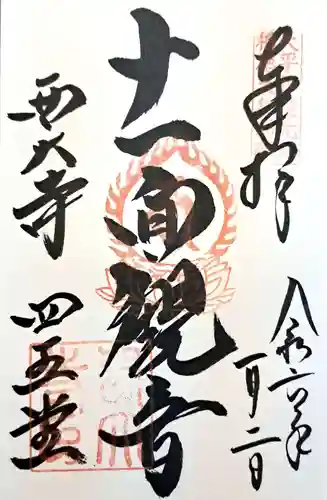 奉拝
令和六年
一月二日
十一面観音
西大寺
四王堂